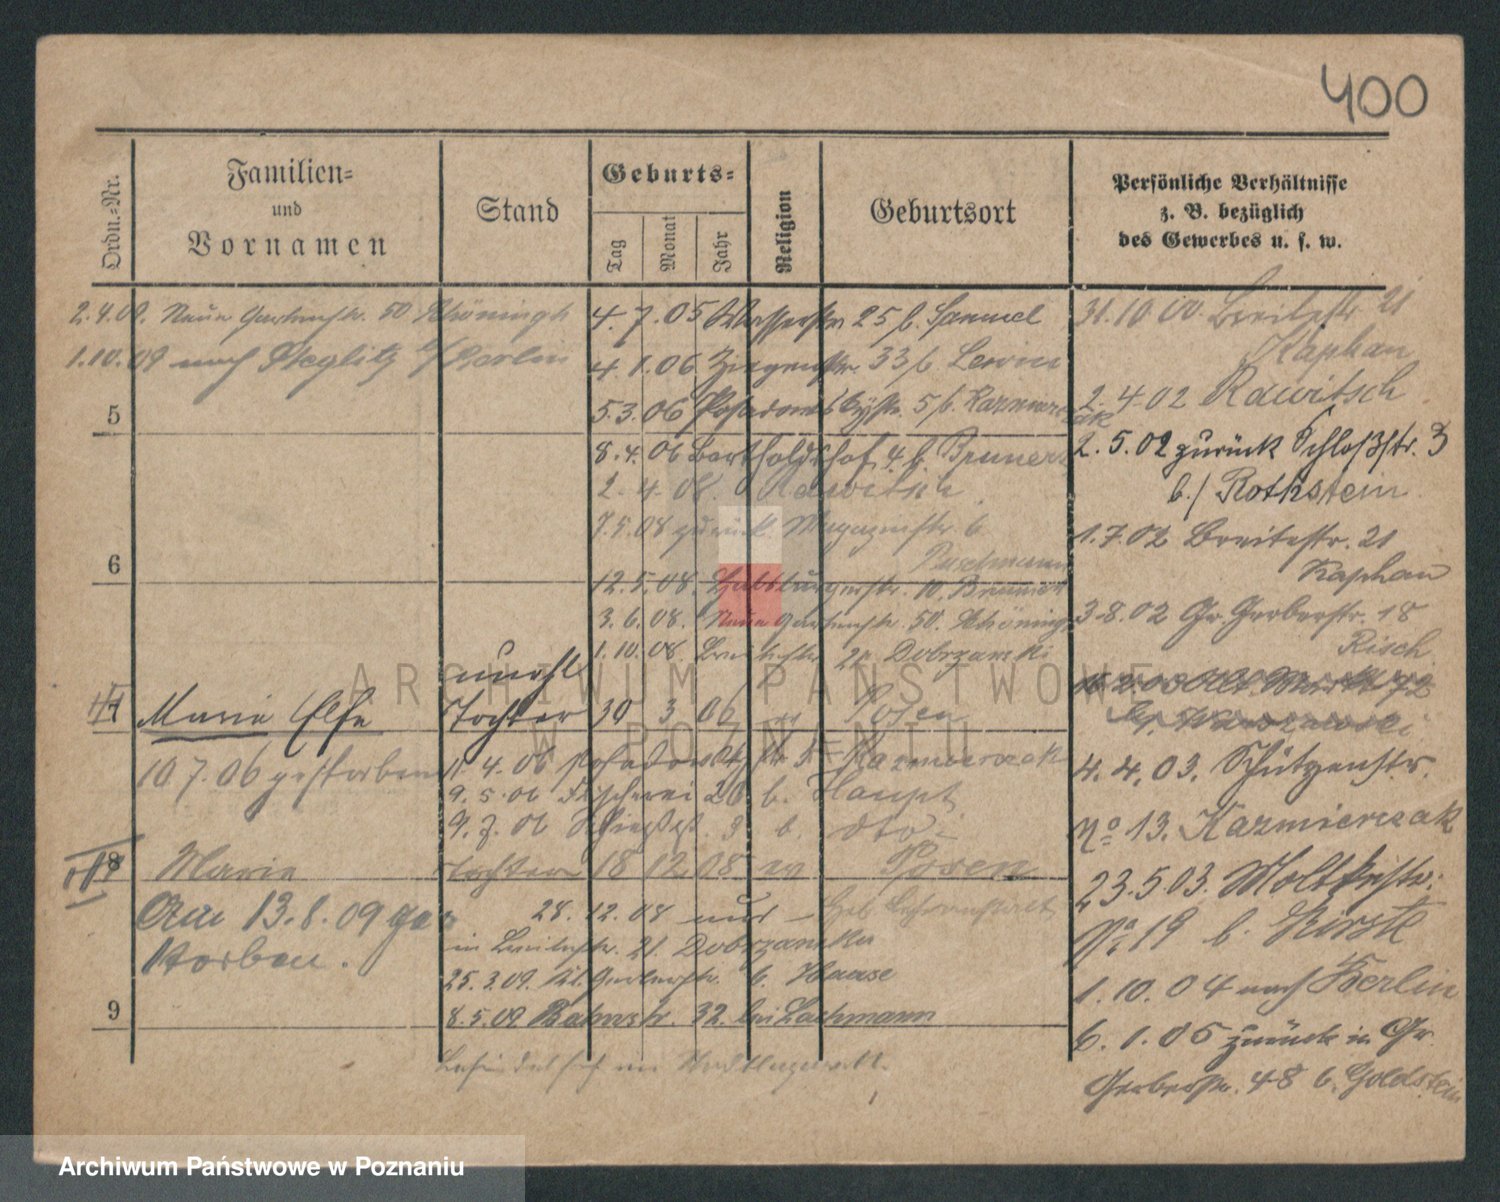 400
Ordn.-Nr.
Familien-
und
Vornamen
Stand
Geburts-
Tag
Monat
Jahr
Religion
Geburtsort
Persönliche Verhältnisse
z. B. bezüglich
des Gewerbes u. s. w.
2.4.09. Neue Gartenstr. 50 Schöningh
1.10.09 nach Steglitz b/Berlin
5
6
unehl
7
Marie Else
Tochter
30 3 06
Posen
10.7.06 gestorben
8
Marie
Tochter
18 12 08 ev
Posen
Am 13.8.09 ge-
storben.
9
4.7.05 Wasserstr 25 b. Samuel
4.1.06 Ziegenstr. 33 b. Lewin
5.3.06 5 b. Kazmierczak
8.4.06 Bartholdshof 4 b. Brunert
2.4.08. Rawitsch
7.5.08 zurück Magazinstr. 6
Buschmann
12.5.08. Habsburgerstr. 10. Brunert
3.6.08. Neue Gartenstr. 50. Schöningh
1.10.08 Breitestr. 21 Dobrzanski
11.4.06 Kazmierczak
9.5.06 Fischerei 26 b. Haupt
9.7.06 3 b. dto
28.12.08 aus Heb. Lehranstalt
in Breitestr. 21. Dobrzanska
25.3.09. Kl. Gerberstr. 6. Haase
8.5.09 Bahnstr. 32. bei Lachmann
befindet sich im
31.10.00. Breitestr 21
Kaphan
2.4.02 Rawitsch
2.5.02 zurück Schloßstr. 3
b./ Rothstein
1.7.02 Breitestr. 21
Kaphan
3.8.02 Gr. Gerberstr. 18
Risch
4.4.03. Schützenstr.
No 13. Kazmierczak
23.5.03. Moltkestr.
No 19 b.
1.10.04 nach Berlin
6.1.05 zurück in Gr.
Gerberstr. 48 b. Goldstein
ARCHIWUM PAŃSTWOWE
W POZNANIU
Archiwum Państwowe w Poznaniu